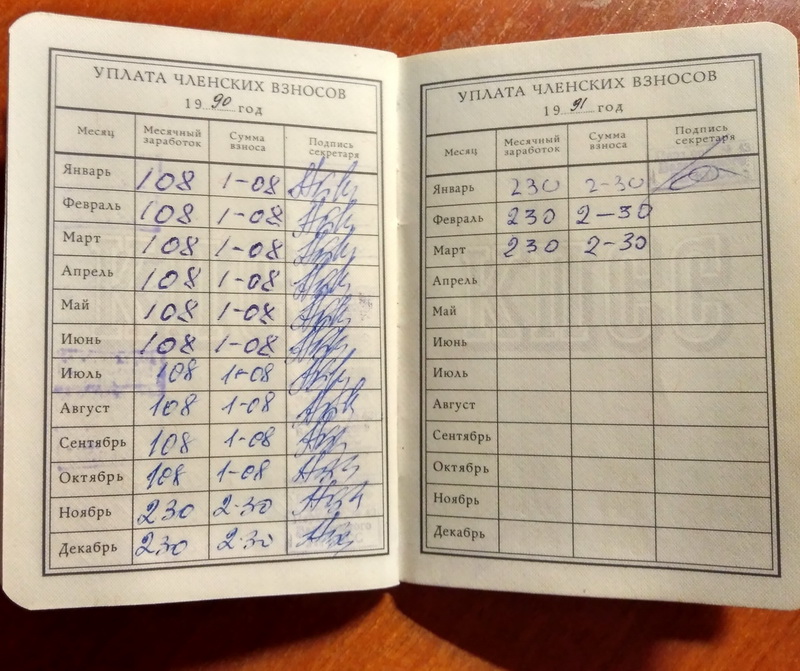 УПЛАТА ЧЛЕНСКИХ ВЗНОСОВ
1990 год
Месяц Месячный заработок Сумма взноса Подпись секретаря
Январь 108 1-08
Февраль 108 1-08
Март 108 1-08
Апрель 108 1-08
Май 108 1-08
Июнь 108 1-08
Июль 108 1-08
Август 108 1-08
Сентябрь 108 1-08
Октябрь 108 1-08
Ноябрь 230 2-30
Декабрь 230 2-30
УПЛАТА ЧЛЕНСКИХ ВЗНОСОВ
1991 год
Месяц Месячный заработок Сумма взноса Подпись секретаря
Январь 230 2-30
Февраль 230 2-30
Март 230 2-30
Апрель
Май
Июнь
Июль
Август
Сентябрь
Октябрь
Ноябрь
Декабрь
КПСС